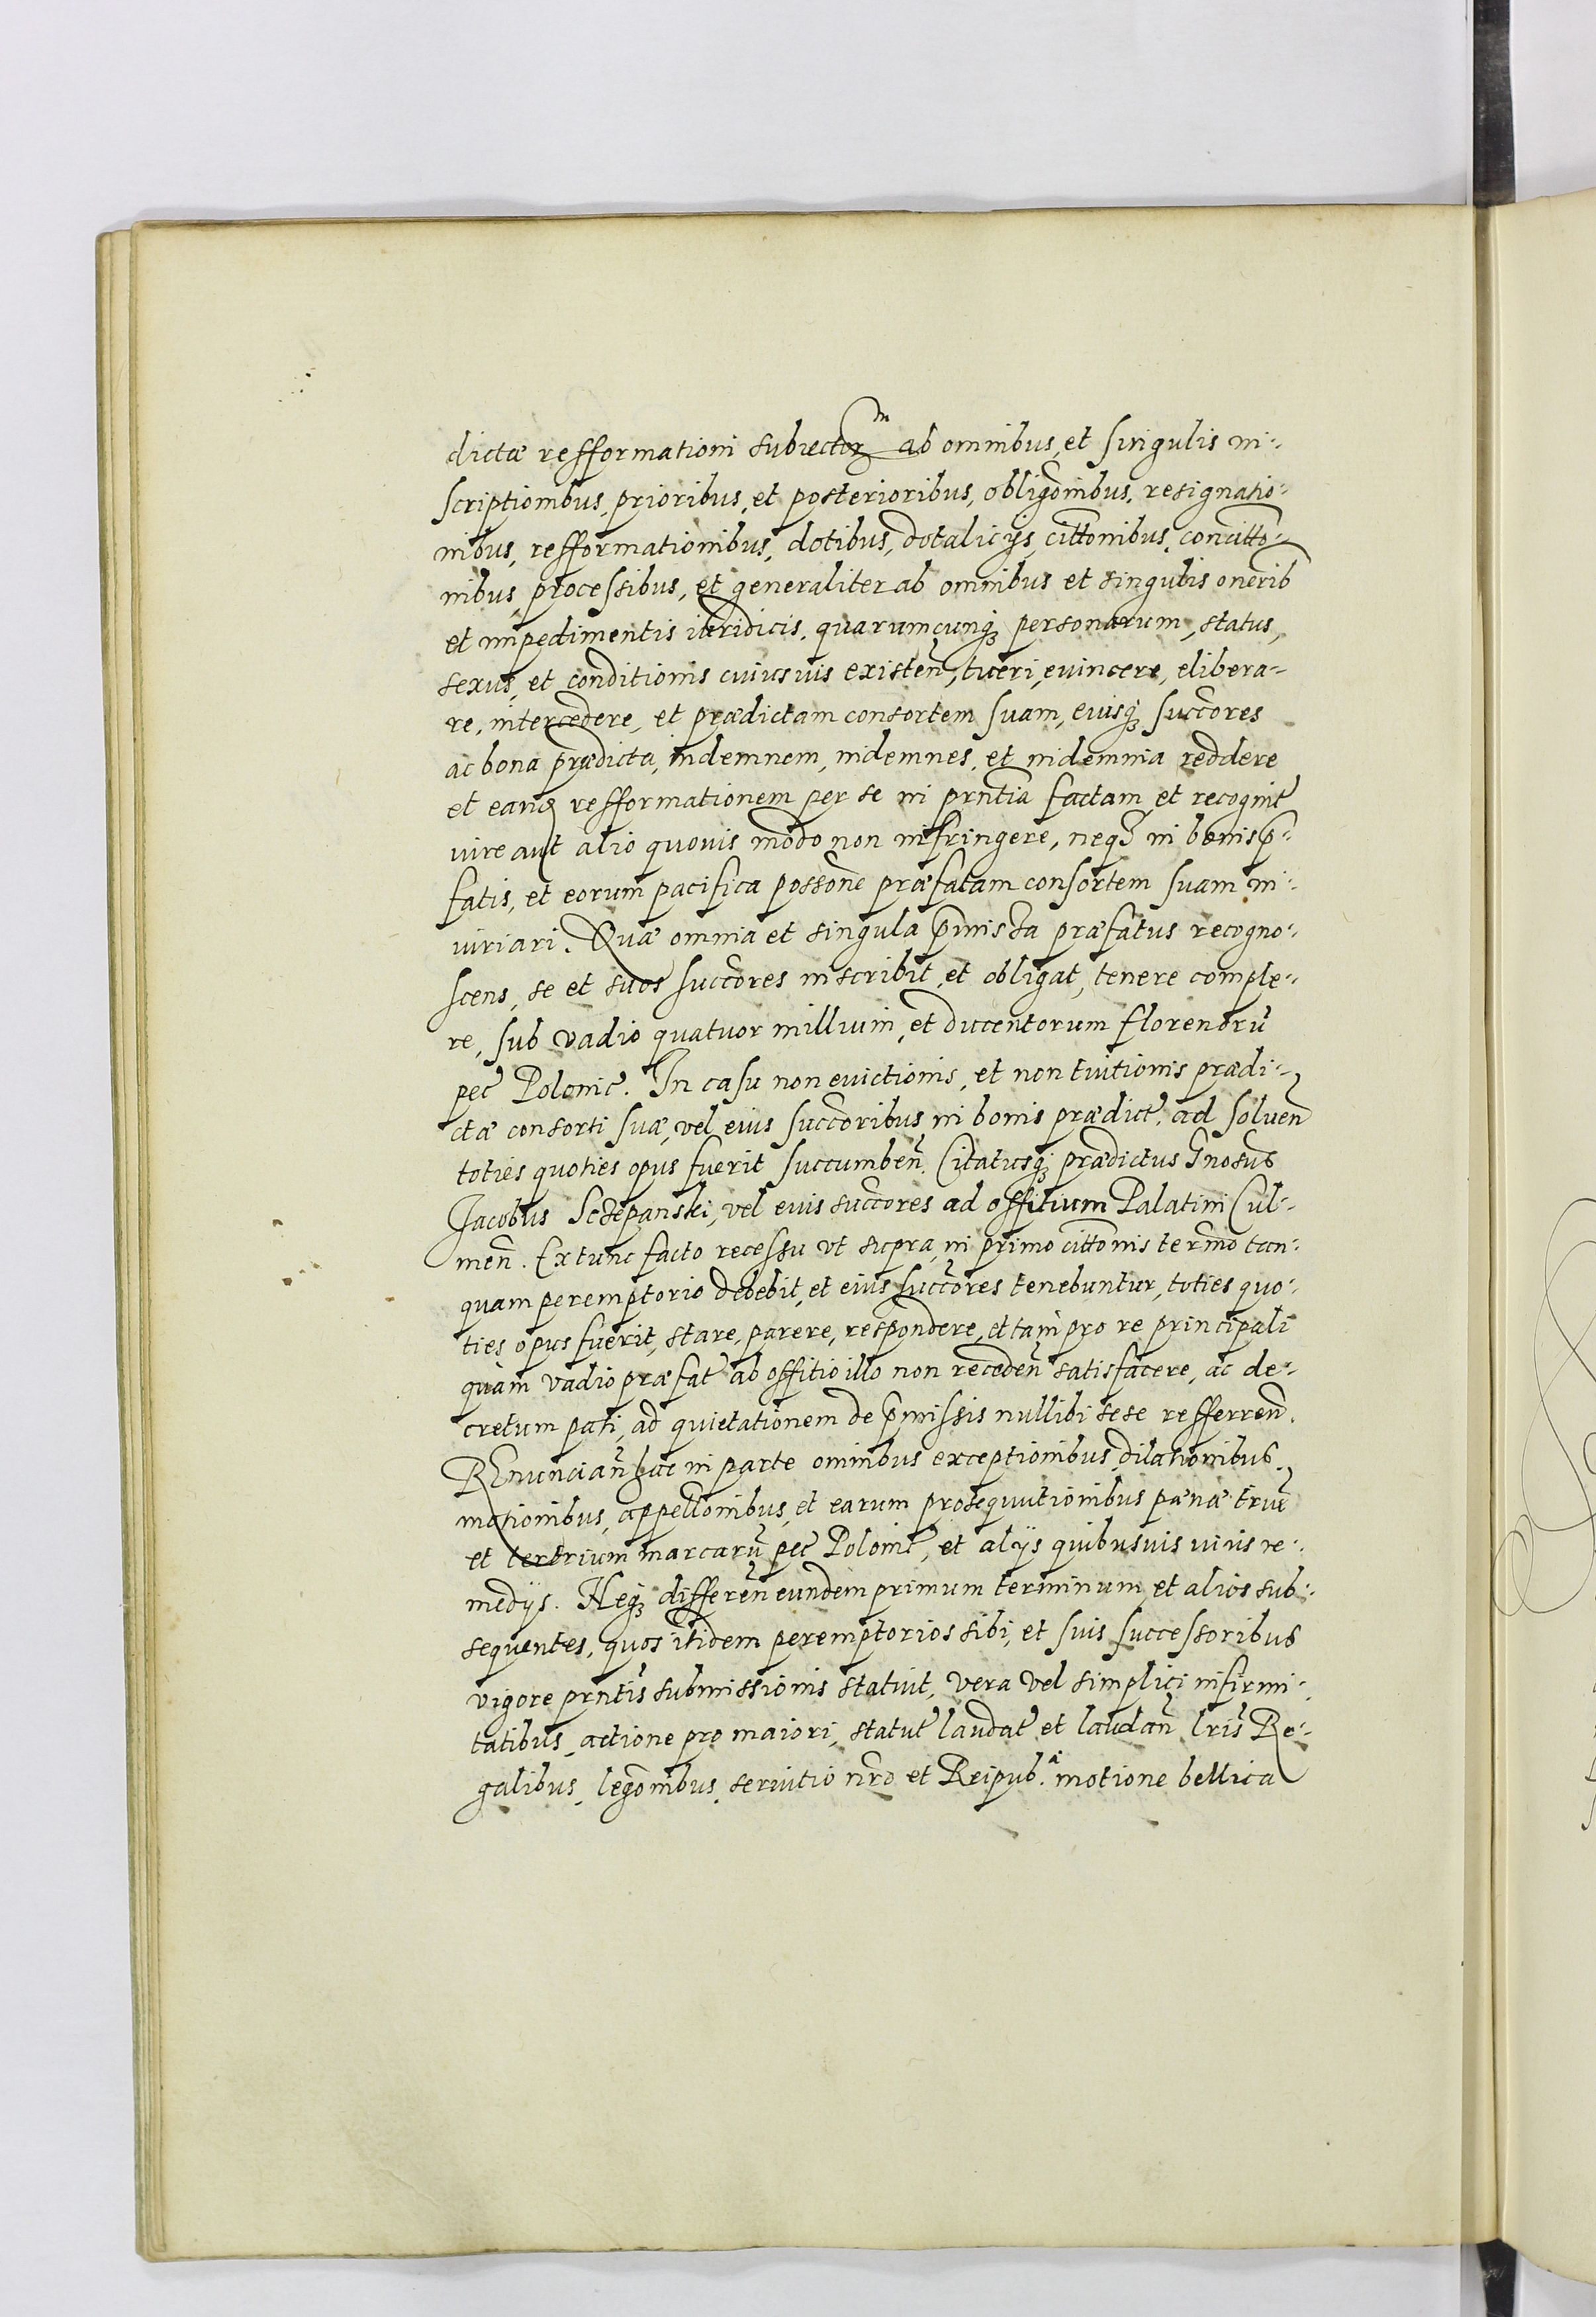 dictæ refformationi subiectorum ab omnibus, et singulis in-
scriptionibus, prioribus, et posterioribus, obligōnibus, resignatio-
nibus, refformationibus, dotibus, dotalicijs, cittōnibus, concittō-
nibus, processibus, et generaliter ab omnibus et singulis onerib
et impedimentis iuridicis, quarumcunq₃ personarum, status,
sexus, et conditionis cuiusuis existeñ, tueri, euincere, elibera-
re, intercedere, et prædictam consortem suam, eiusq₃ succōres
ac bona prædicta, indemnem, indemnes, et indemnia reddere
et eand refformationem per se in prntia factam et recognit
iure aut alio quouis modo non infringere, neq₃ in bonis p̄-
fatis, et eorum pacifica possōne præfatam consortem suam in-
iuriari. Quæ omnia et singula p̄missa præfatus recogno-
scens, se et suos succōres inscribit, et obligat, tenere comple-
re, sub vadio quatuor millium, et ducentorum florenorū
pec Polonic. In casu non euictionis, et non tuitionis prædi-
ctæ consorti suæ, vel eius succōribus in bonis prædict. ad soluend
toties quoties opus fuerit succumbeñ. Citatusq₃ prædictus Gnosus
Jacobus Sczepanski, vel eius succōres ad offitium Palatini Cul-
meñ. Ex tunc facto recessu vt supra, in primo cittōnis termō tan-
quam peremptorio debebit, et eius succōres tenebuntur, toties quo-
ties opus fuerit, stare, parere, respondere, et tam pro re principali
quàm vadio præfat ab offitio illo non recedeñ satisfacere, ac de-
cretum pati, ad quietationem de p̄missis nullibi sese refferrend.
REnunciañ hac in parte omnibus exceptionibus, dilationibus,
motionibus, appellōnibus, et earum prosequutionibus pænæ triũ
et trium marcarū pec Polonic, et alijs quibusuis iuris re-
medijs. Neq₃ differeñ eundem primum terminum, et alios sub-
sequentes, quos itidem peremptorios sibi, et suis successoribus
vigore prntis submissionis statuit, vera vel simplici infirmi-
tatibus, actione pro maiori, statut laudat et laudañ lris Re-
galibus, legōnibus, seruitio nr̄o et Reipub. motione bellica